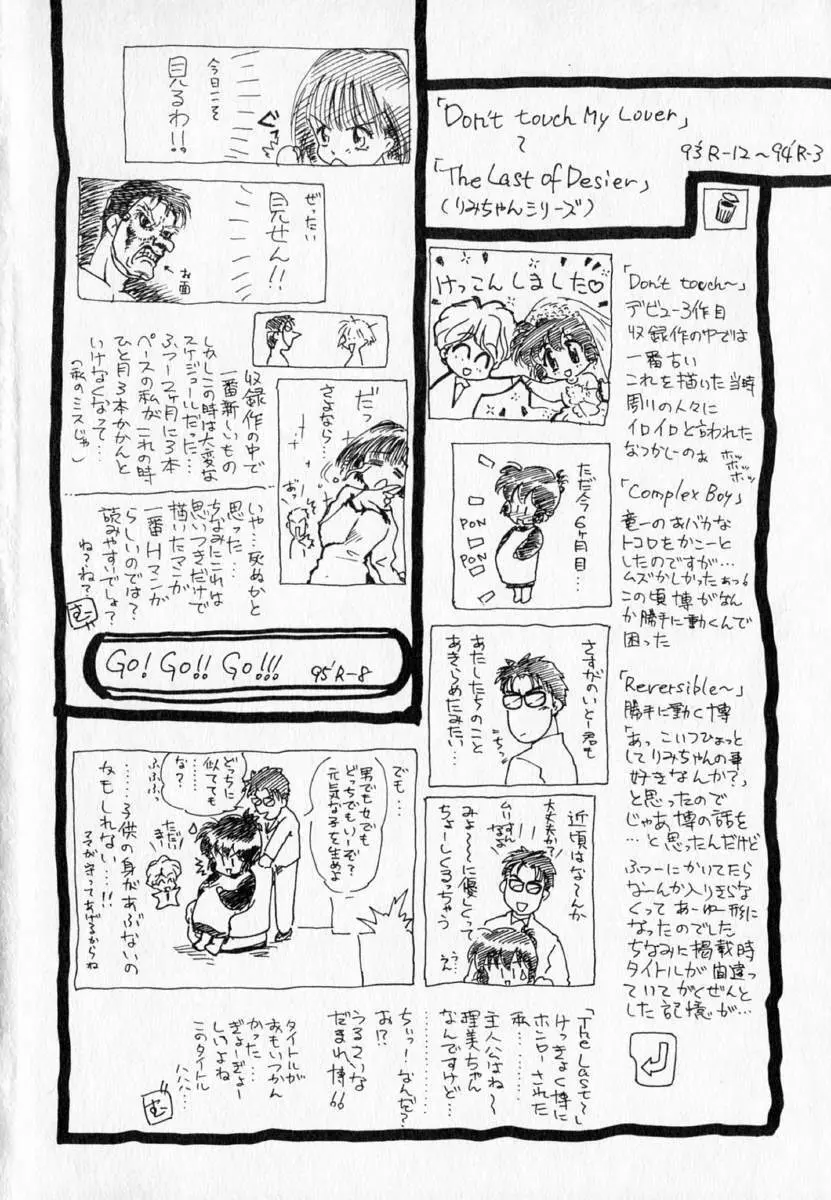 「Don't touch My Lover」
〜
「The Last of Desier」
(りみちゃんシリーズ)
93'R-12〜94'R-3
「Don't touch〜」
デビュー3作目
収録作の中では
一番古い
これを描いた当時
周りの人々に
イロイロと言われた
なつかしーのぉ
ホッ
ホッ
ホッ
「Complex Boy」
竜一のおバカな
トコロをかこーと
したのですが…
ムズかしかったぁっ。
この頃博がなん
か勝手に動くんで
困った
「Reversible〜」
勝手に動く博
「あっこいつひょっと
してりみちゃんの事
好きなんか?」
と思ったので
じゃあ博の話を
…と思ったんだけど
ふつーにかいてたら
なーんか入りきらな
くってあーゆー形に
なったのでした
ちなみに掲載時
タイトルが間違っ
ていてがくぜんと
した記憶が…
けっこんしました♡
ただ今6ヶ月目…
PON
PON
さすがのいとー君も
あたしたちのこと
あきらめたみたい…
近頃はな〜んか
みょ〜〜に優しくって
ちょーしくるっちゃう
大丈夫か?
ムリすん
なよ
うん
でも…
男でも女でも
どっちでもいーぞ?
元気な子を生めよ
どっちに
似てても
な?
ふふふっ
ただいまー
……子供の身があぶないの
かもしれない…!!
ママが守ってあげるからね
「The Last〜」
けっきょく博に
ホンローされた
私…
主人公はね〜
理美ちゃん
なんですけど…
………
ちぃっ!なんだ?
お!?
うるさいな
だまれ博!!
タイトルが
おもいつかん
かった…
ぎょーぎょー
しいよね
このタイトル
ハハハ…
今日こそ
見るわ!!
ぐっ
ぜったい
見せん!!
お面
だっ
さよなら…
おっ
収録作の中で
一番新しいもの
しかしこの時は大変な
スケジュールだった…
ふつー2ヶ月に3本
ペースの私がこれの時
ひと月3本かかんと
いけなくなって…
(私のミスじゃ)
いや…死ぬかと
思った…
ちなみにこれは
思いつきだけで
描いたマンガ
一番Hマンガ
らしいのでは?
読みやすいでしょ?
ね?ね?
Go! Go!! Go!!!
95'R-8